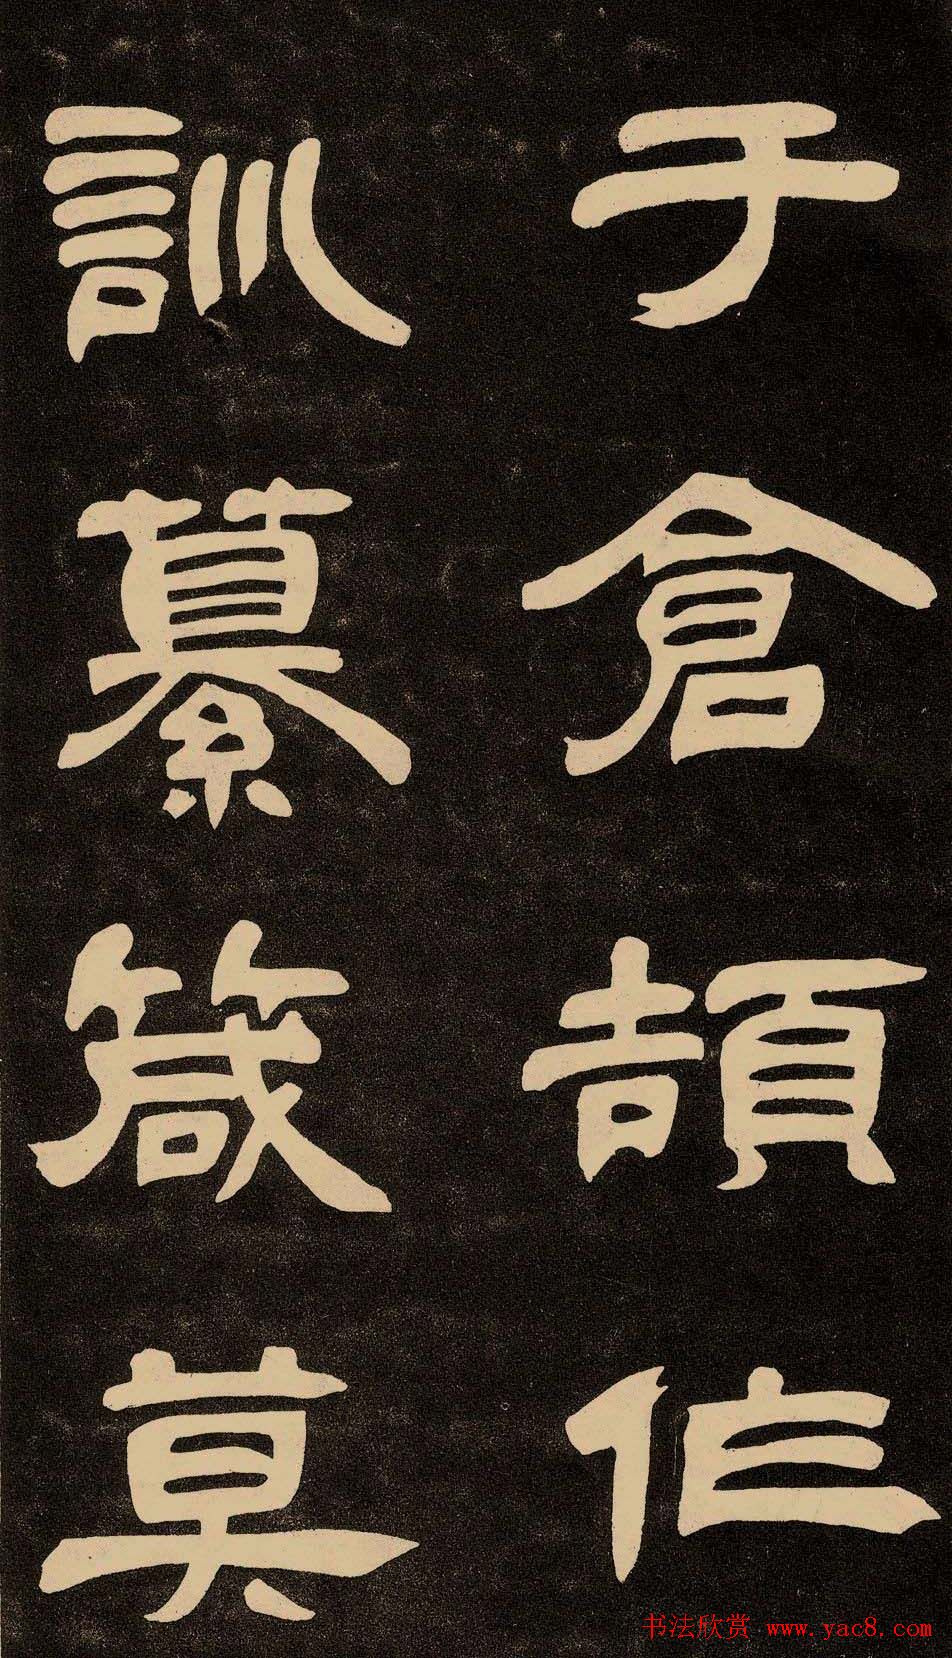 于倉頡作
訓纂箴莫
书法欣赏 www.yac8.com